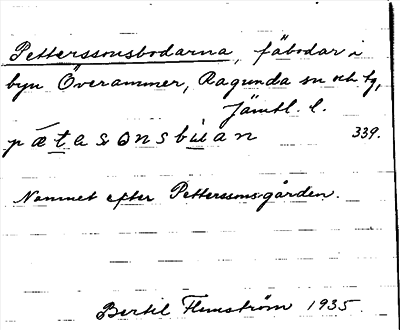 Petterssonsbodarna, fäbodar i
byn Överammer, Ragunda sn och tg,
Jämtl. l.
pætasonsbuan 339.
Namnet efter Petterssonsgården.
Bertil Flemström 1935.